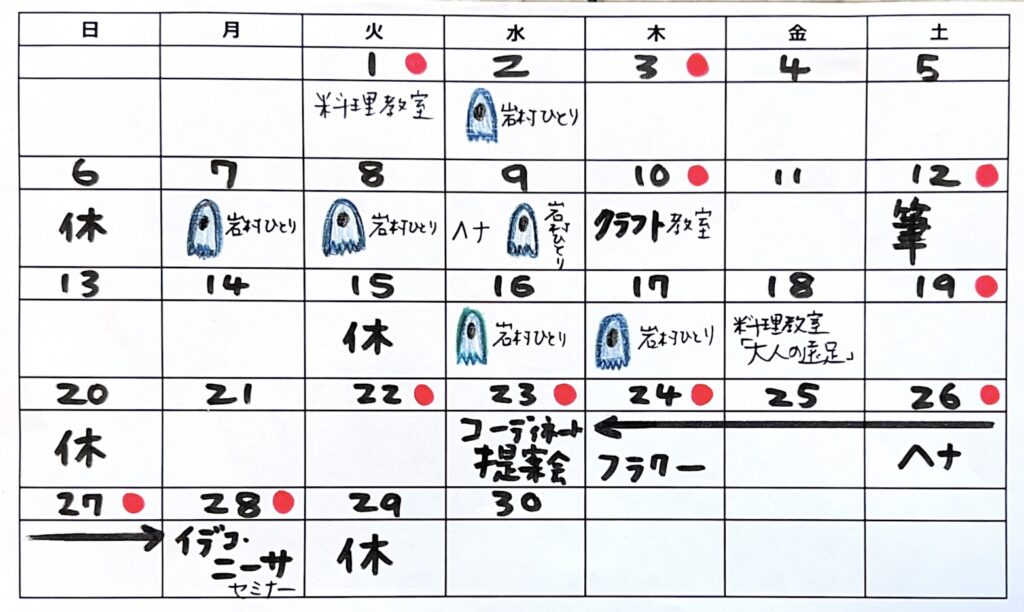 日 月 火 水 木 金 土
1 2 3 4 5
料理教室 岩村ひとり
6 7 8 9 10 11 12
休 岩村ひとり 岩村ひとり ヘナ 岩村ひとり クラフト教室 筆
13 14 15 16 17 18 19
休 岩村ひとり 岩村ひとり 料理教室
「大人の遠足」
20 21 22 23 24 25 26
休 コーディネート
提案会 フラワー ヘナ
27 28 29 30
イデコ・
ニーサ
セミナー 休